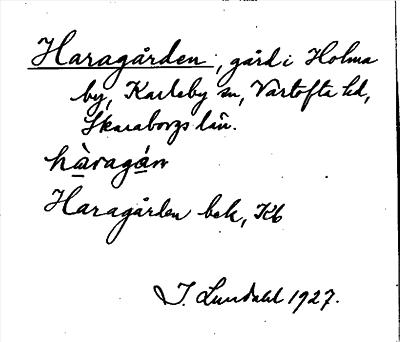 Haragården, gård i Holma
by, Karleby sn, Vartofta hd,
Skaraborgs län.
hàragán
Haragården bek, Kb
I. Lundahl 1927.